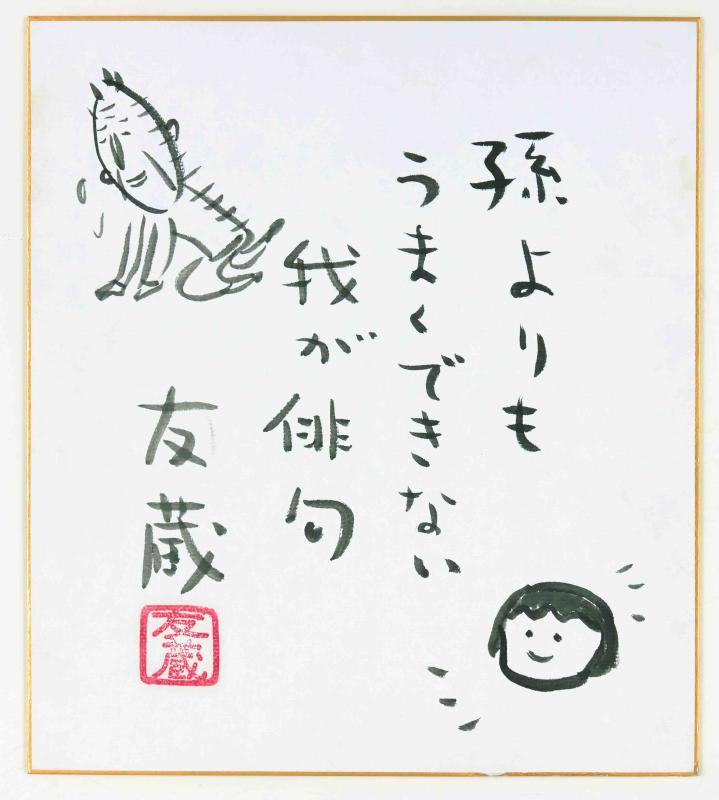 孫よりも
うまくできない
我が俳句
友蔵
友蔵